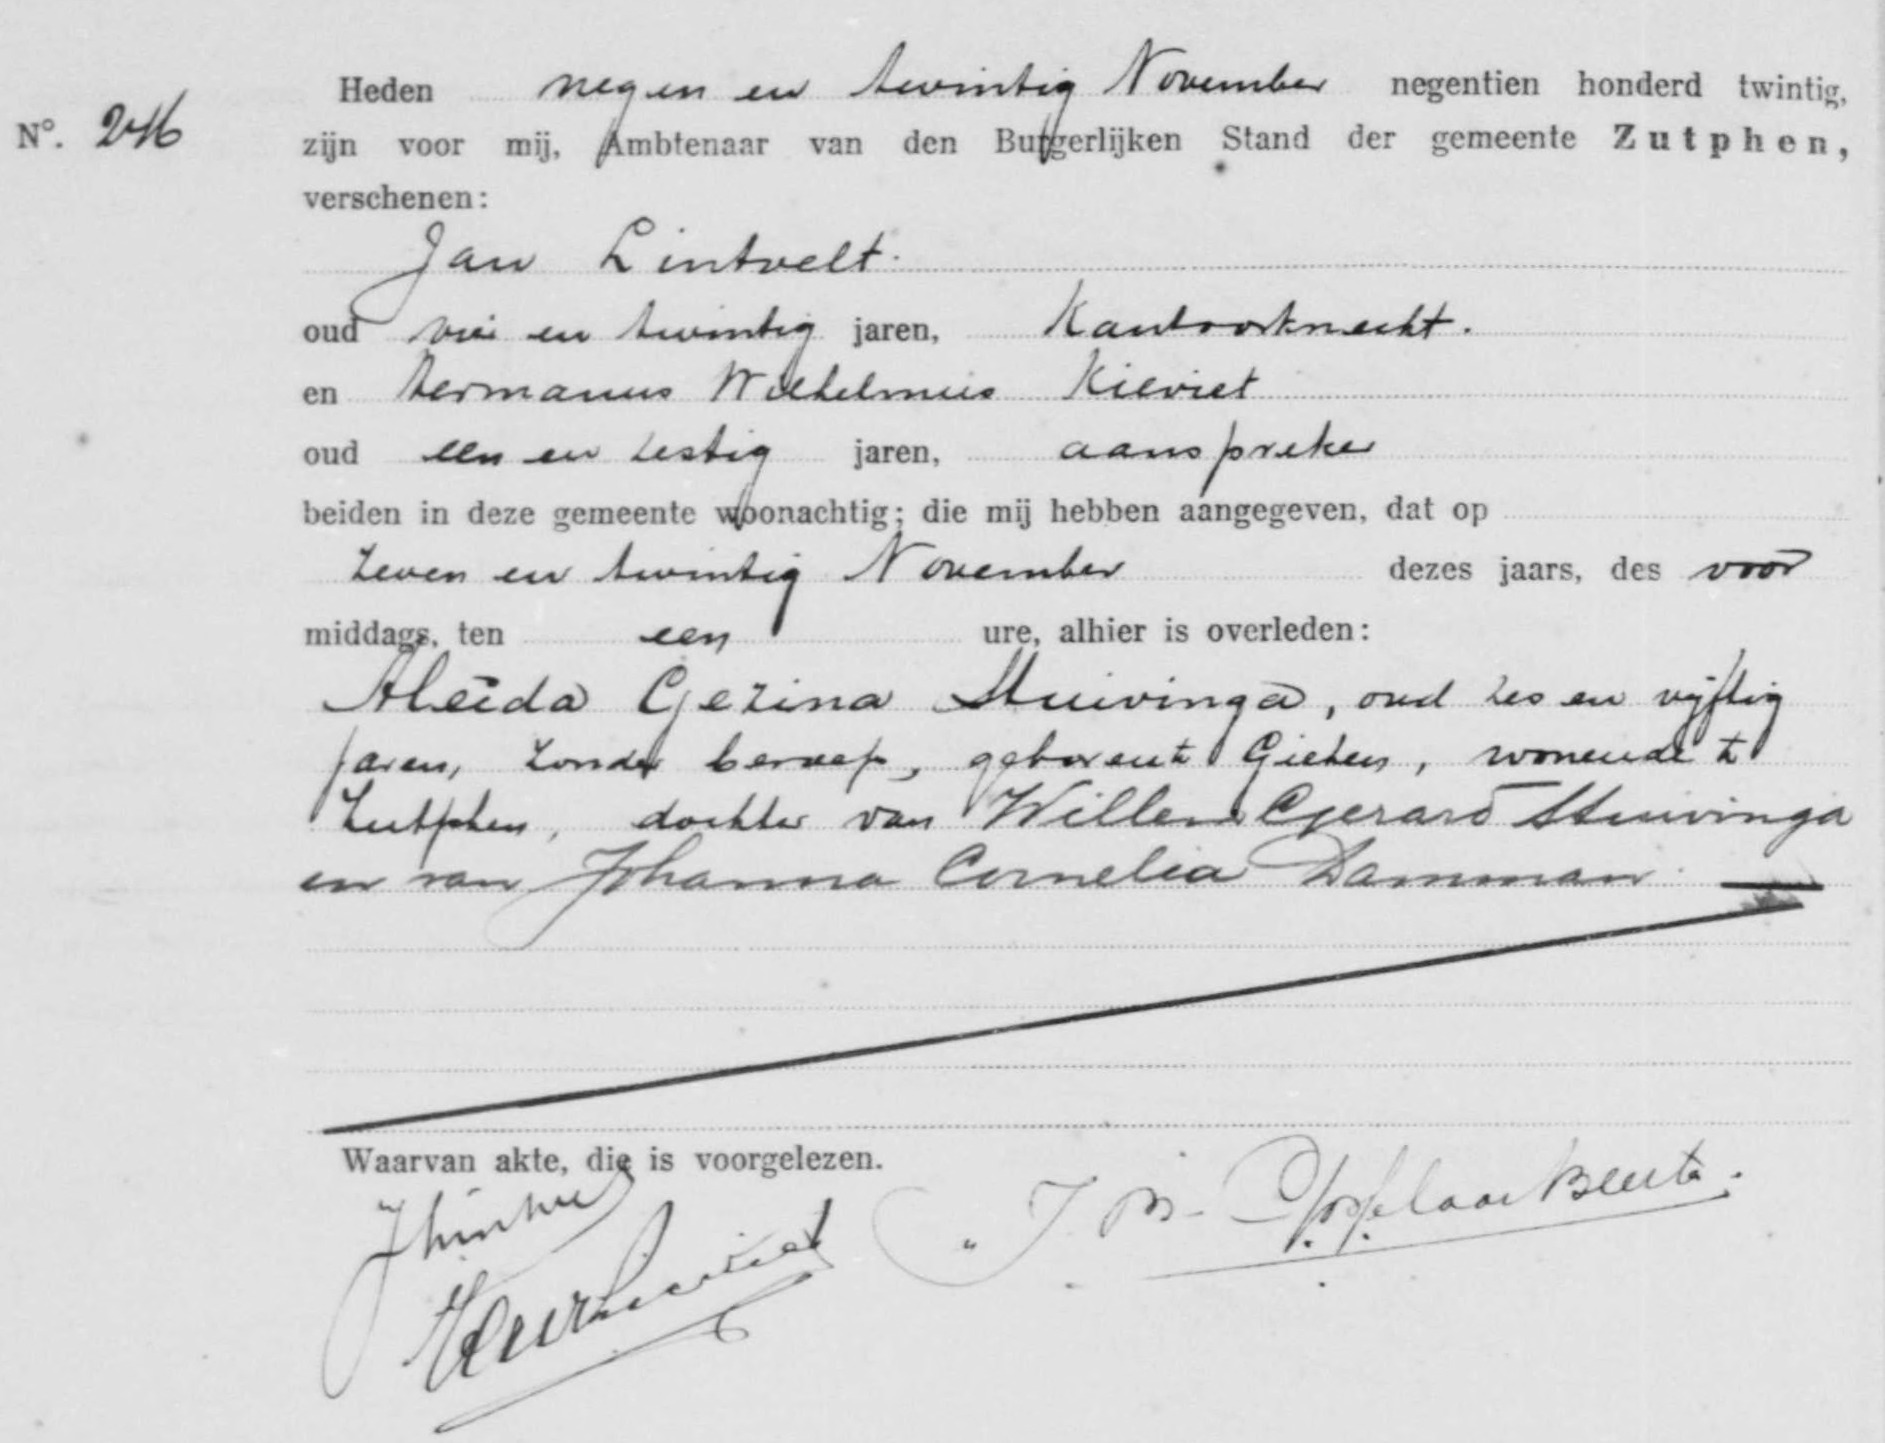 Heden negen en twintig November negentien honderd twintig,
No. 246 zijn voor mij, Ambtenaar van den Burgerlijken Stand der gemeente Zutphen,
verschenen:
Jan Lintvelt.
oud vier en twintig jaren, Kantoorknecht.
en Hermanus Wilhelmus Kieviet
oud een en zestig jaren, aanspreker
beiden in deze gemeente woonachtig; die mij hebben aangegeven, dat op
zeven en twintig November dezes jaars, des voor
middags, ten een ure, alhier is overleden:
Aleida Gezina Stuivinga, oud zes en vijftig
jaren, zonder beroep, geboren te Gieten, wonende te
Zutphen, dochter van Willem Gerard Stuivinga
en van Johanna Cornelia Damman.
Waarvan akte, die is voorgelezen.
JLintvelt
HWKieviet